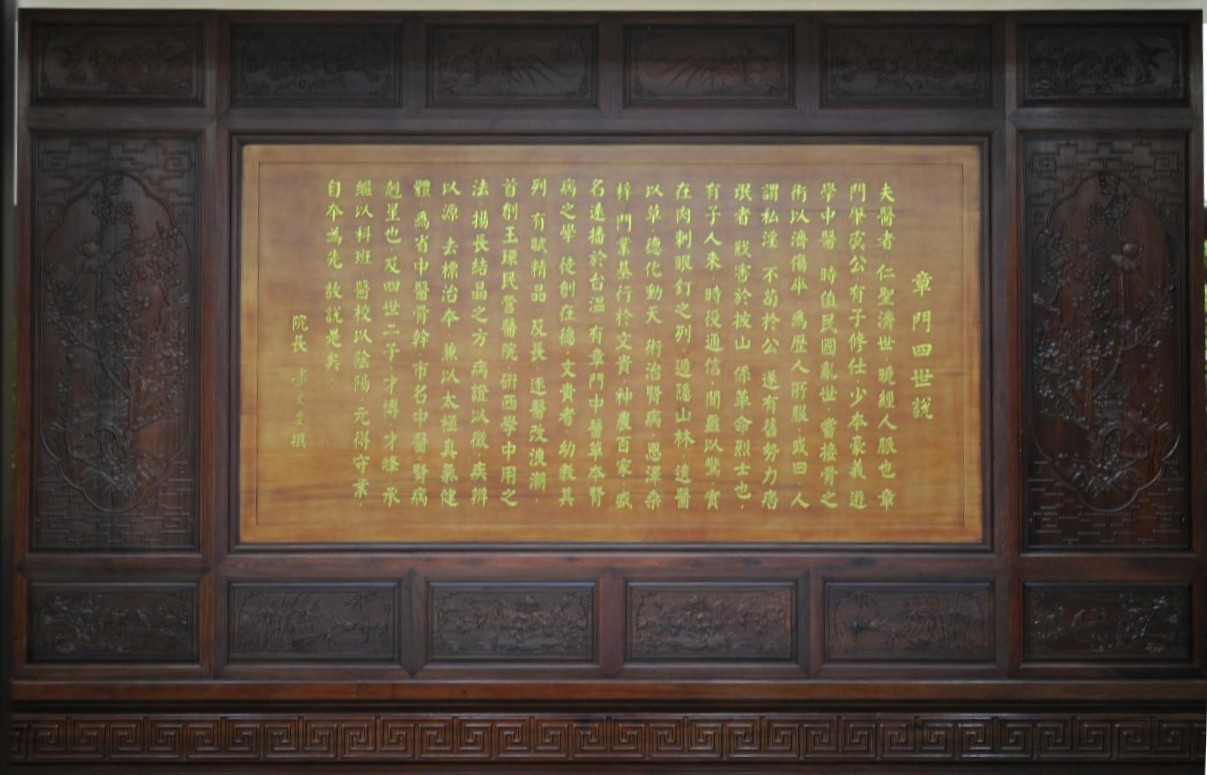 章門四世說
夫醫者,仁聖濟世,曉經人脈也,章
門肇虞公有子修仕,少本豪義,遊
學中醫,時值民國亂世,嘗接骨之
術以濟傷卒,為歷人所服,或曰,人
謂私淫,不苟於公,遂有舊勢力痞
氓者,戕害於披山,係革命烈士也,
有子人朱,時役通信,聞盡以驚,實
在肉刺眼釘之列,遁隱山林,遠醫
以草,德化動天,術治腎病,恩澤桑
梓,門業基行於文貴,神農百家,盛
名遠播於台溫,有章門中醫草本腎
病之學,德創在德,文貴者,幼教其
列,有賦精品,及長,遂醫改浪潮,
首創玉環民營醫院,術西學中用之
法,揚長結晶之方,病證以徵,疾辨
以源,去標治本,兼以太極真氣健
體,為省中醫骨幹,市名中醫腎病
剋星也,及四世二子,才博,才峰,承
繼以科班,醫校以陰陽,元得守業,
自奉為先,故說是矣,
院長 撰